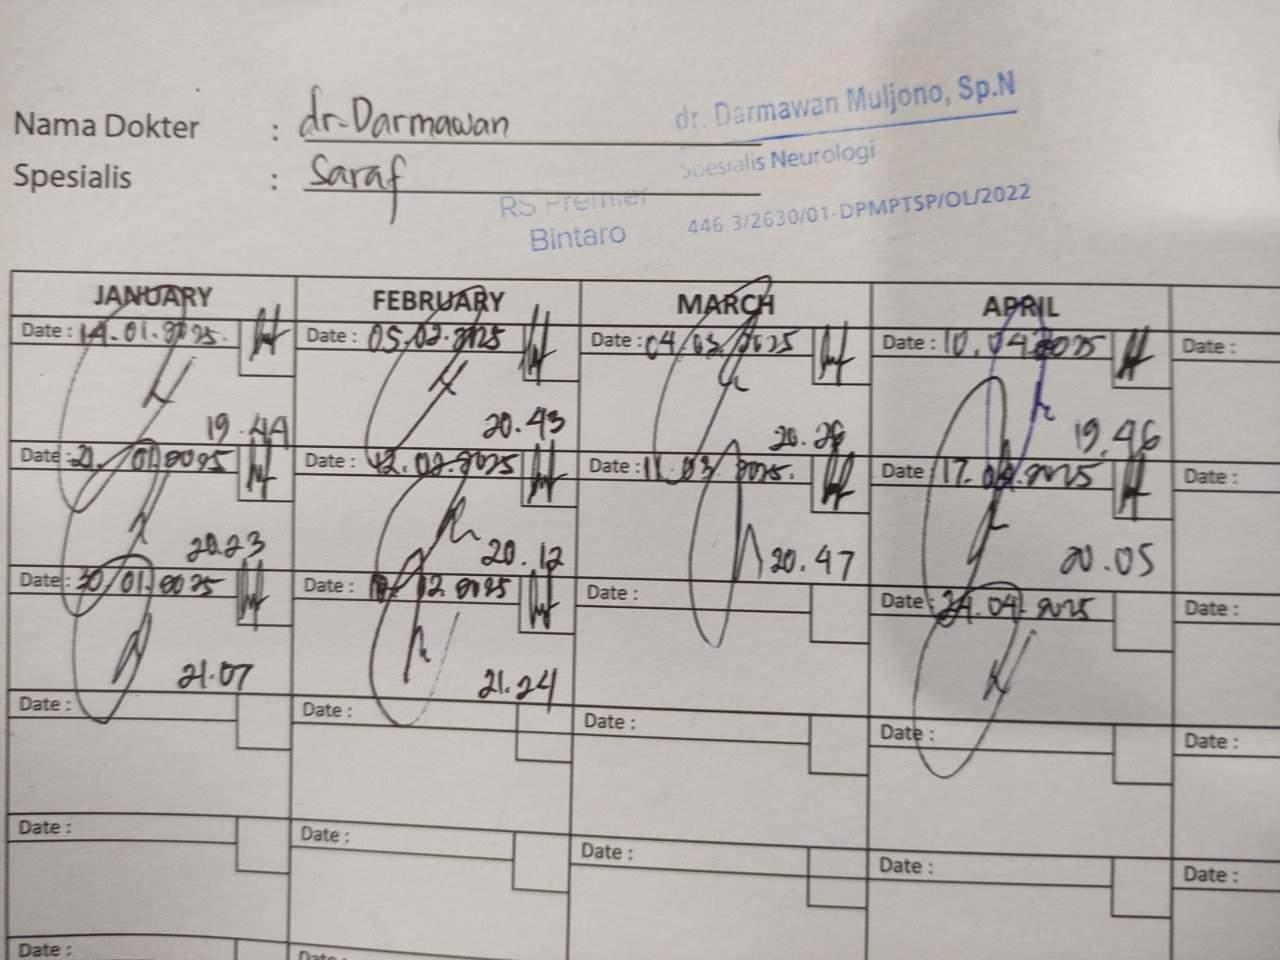 Nama Dokter : dr. Darmawan
Spesialis : Saraf
dr. Darmawan Muljono, Sp.N
Spesialis Neurologi
RS Premier
Bintaro
446.3/2630/01-DPMPTSP/OL/2022
JANUARY FEBRUARY MARCH APRIL
Date : 14.01.2025. Date : 05.02.2025 Date : 04/03/2025 Date : 10.04.2025 Date :
19.44 20.43 20.28 19.46
Date : 01.2025 Date : 12.02.2025 Date : 11.03.2025. Date : 17.04.2025 Date :
20.23 20.12 20.47 20.05
Date : 30/01.2025 Date : 2025 Date : Date : 24.04.2025 Date :
21.07 21.24
Date : Date : Date : Date : Date :
Date : Date : Date : Date : Date :
Date : Date